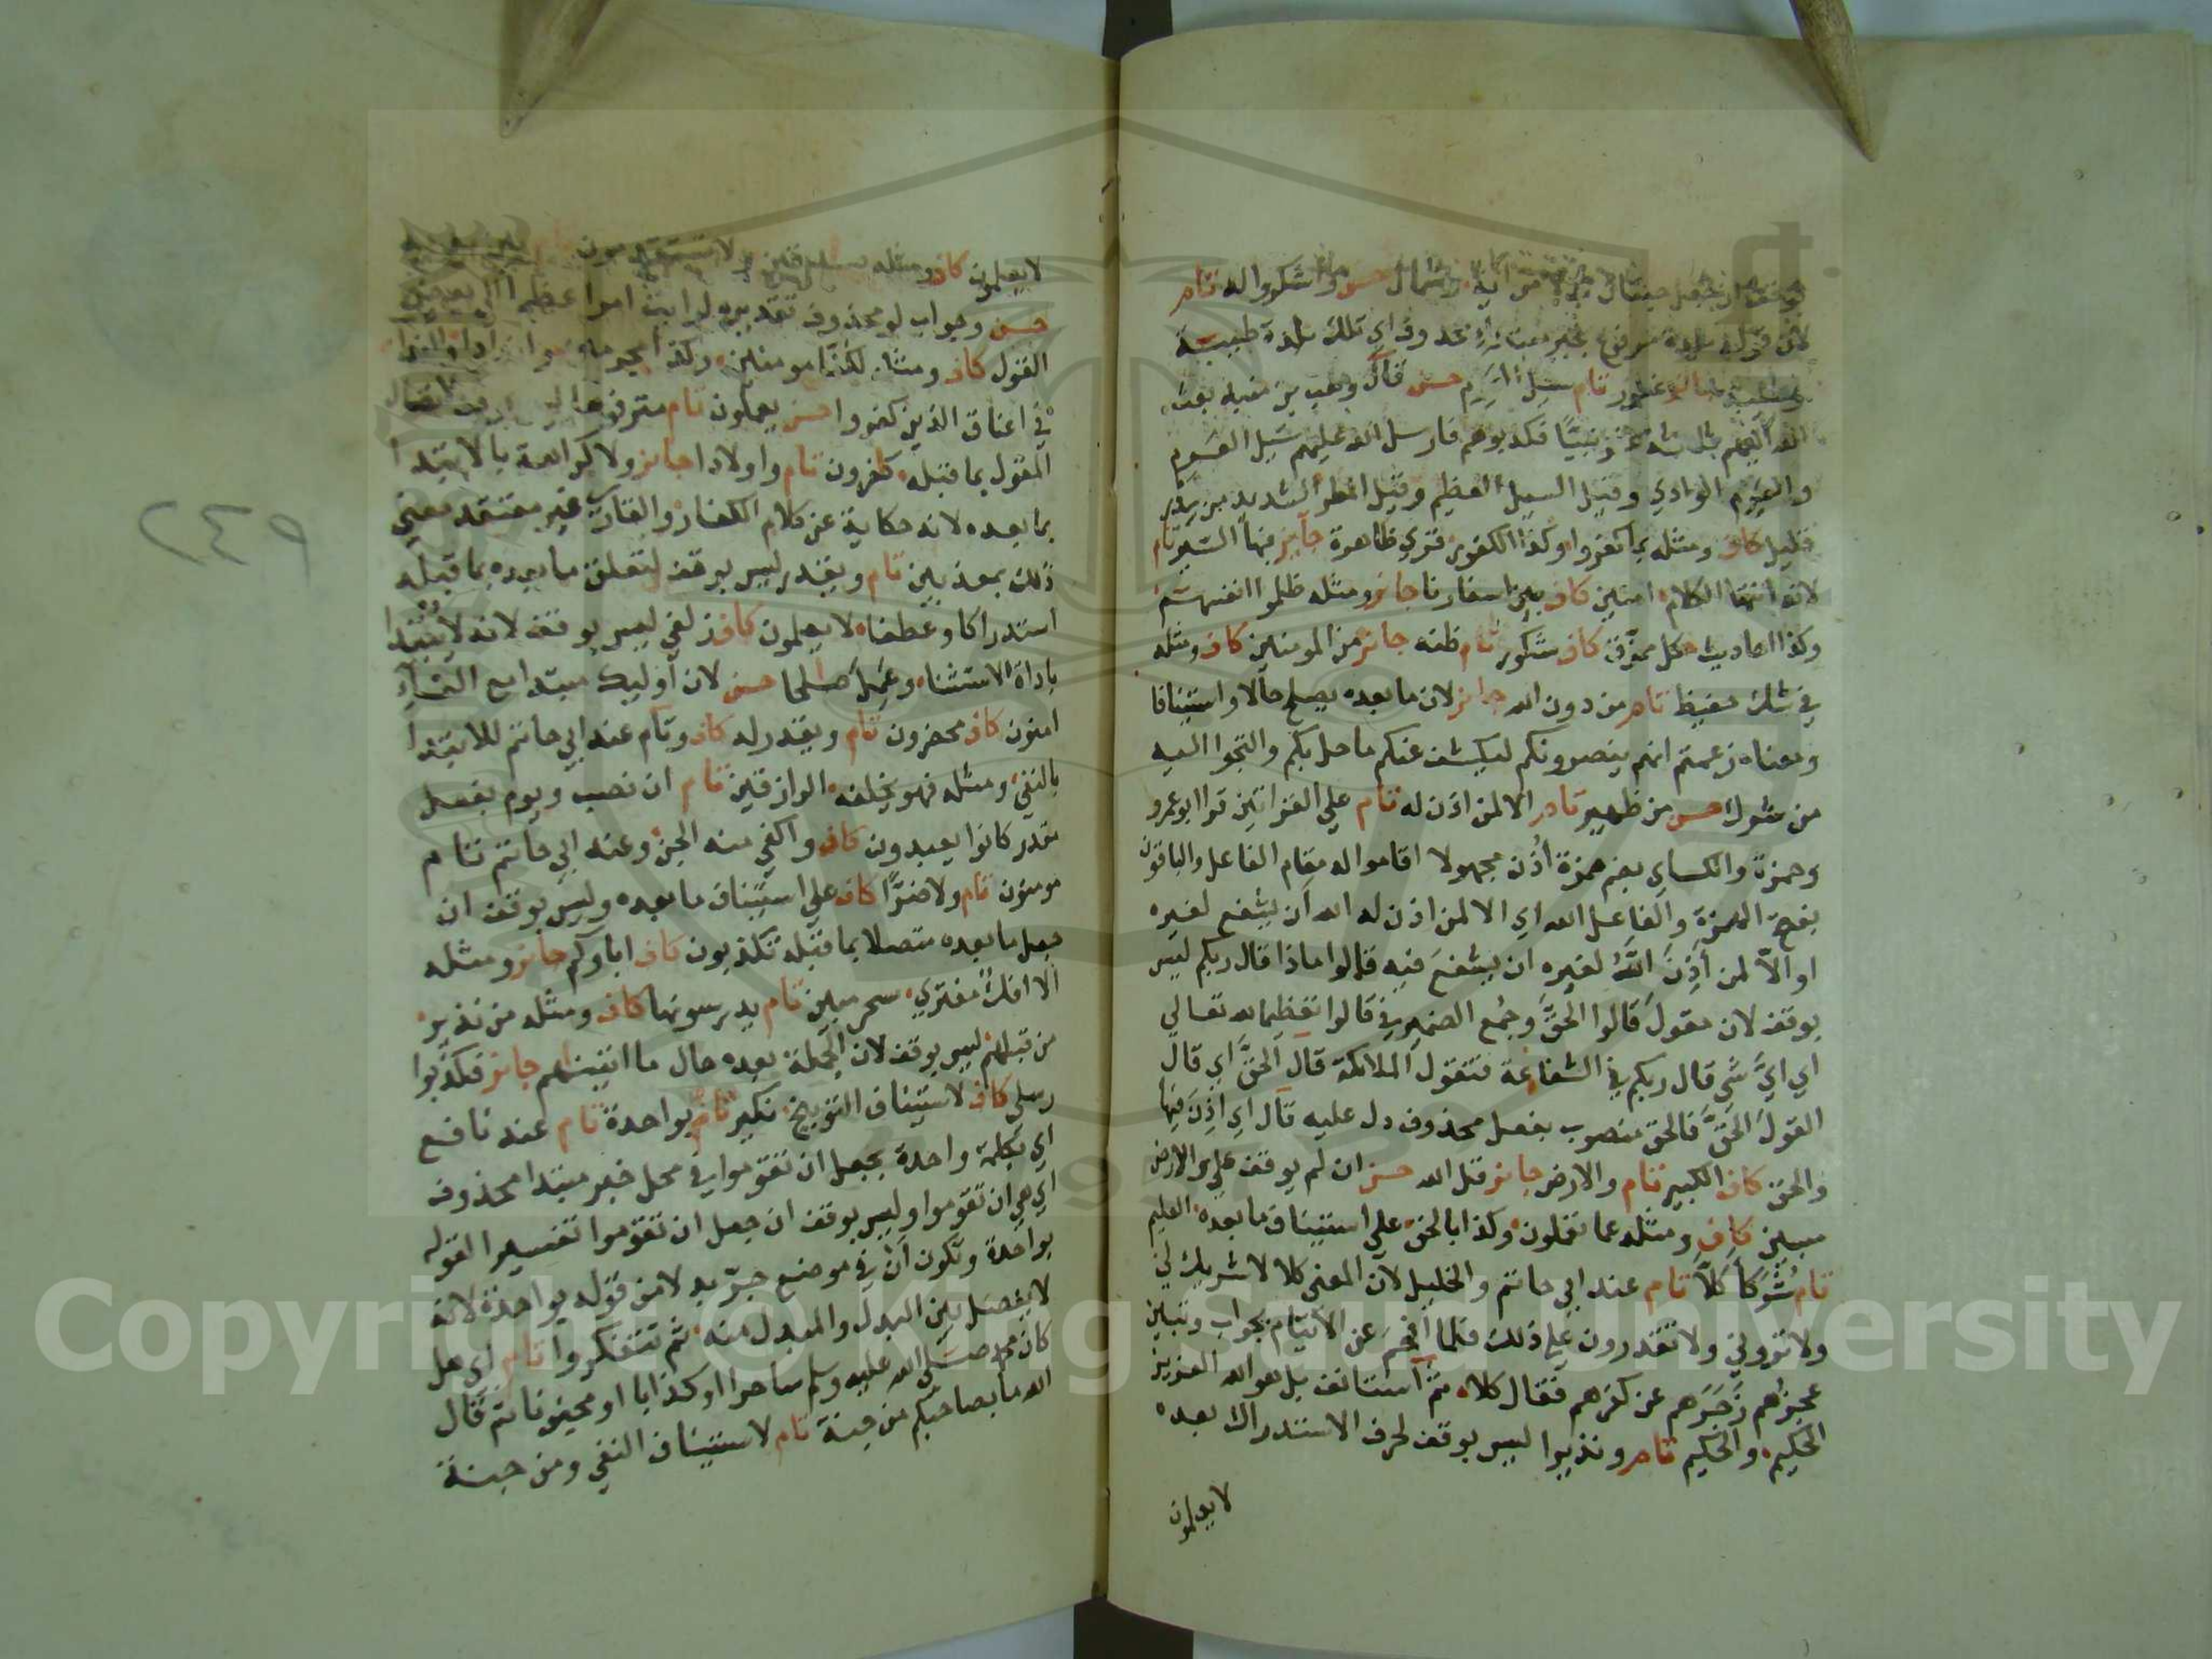 وشمال حسن واشكروا له تام
لان قوله بلدة مرفوع خبر مبتدا محذوف اي تلك بلدة طيبة
غفور تام سيل العرم حسن قال وهب بن منبه بعث
الله اليهم ثلاثة عشر نبيًا فكذبوهم فارسل الله عليهم سَيل العَرم
والعرم الوادي وقيل السيل العظيم وقيل المطر الشديد من سدر
قليل كاف ومثله بما كفروا وكذا الكفور قري ظاهرة جايز فيها السير تام
لانه انتها الكلام امنين كاف بين اسفارنا جايز ومثله ظلموا انفسهم
وكذا احاديث كل ممزق كاف شكور تام ظنه جايز من المومنين كاف ومثله
في شك حفيظ تام من دون الله جايز لان ما بعده يصلح حالا واستينافا
ومعناه زعمتم انهم ينصرونكم ليكشف عنكم ما حل بكم والتجوا اليه
من شرك حسن من ظهير تام الا لمن اذن له تام علي القراتين قرا ابو عمرو
وحمزة والكساي بضم همزة أُذن مجهولا اقاموا له مقام الفاعل والباقون
بفتح الهمزة والفاعل الله اي الا لمن اذن له الله ان يشفع لغيره
او الاّ لمن أَذِنَ اللهُ لغيره ان يشفعَ فيه قالوا ماذا قال ربكم ليس
بوقف لان مقولَ قالوا الحقَّ وجُمع الضمير في قالوا تعظيما لله تعالي
اي ايَّ شي قال ربكم في الشفاعة فتقول الملايكة قال الحقَّ اي قال
القولَ الحقَّ فالحق منصوب بفعل محذوف دل عليه قال اي اذِنَ فيها
والحق كاف الكبير تام والارض جايز قل الله حسن ان لم يوقف علي الارض
مبين كاف ومثله عما تعملون وكذا بالحق علي استيناف ما بعده العليم
تام شُرَكاَ كلّا تام عند ابي حاتم والخليل لان المعنى كلا لا شريك لي
ولا تروني ولا تقدرون علي ذلك فلما أُفحم عن الاتيام بجواب وتبين
عجزُهم زَجَرَهم عن كفرهم فقال كلا ثم استانف بل هو الله العزيز
الحكيم والحكيم تام ونذيرا ليس بوقف لحرف الاستدراك بعده
لا يعلمون
لا يعلمون كاف ومثله صادقين ولا تستقدمون تام
حسن وجواب لو محذوف تقديره لرايت امرا عظيما الي بعض
القول كاف ومثله لكنا مومنين وكذا مجرمين
في اعناق الذين كفروا حسن يعملون تام مترفوها
المقول بما قبله كافرون تام واولادا جايز ولا كراهة بالابتدا
بما بعده لانه حكاية عن كلام الكفار والقاري غير معتقد معني
ذلك بمعذبين تام ويقدر ليس بوقف لتعلق ما بعده بما قبله
استدراكا وعطفا لا يعلمون كاف زلفي ليس بوقف لانه لا يبتدا
باداة الاستثنا وعَمِلَ صالحا حسن لان اوليك مبتدا مع الفا
امنون كاف محضرون تام ويقدر له كاف وتام عند ابي حاتم للابتدا
بالنفي ومثله فهو يخلفه الرازقين تام ان نصب ويوم بفعل
مقدر كانوا يعبدون كاف واكفي منه الجن وعند ابي حاتم تام
مومنون تام ولا ضرًّا كاف علي استيناف ما بعده وليس بوقف ان
جعل ما بعده متصلا بما قبله تكذبون كاف اباوكم جايز ومثله
الا افك مفتري سحر مبين تام يدرسونها كاف ومثله من نذير
من قبلهم ليس بوقف لان الجملة بعده حال ما اتيناهم جايز فكذبوا
رسلي كاف لاستيناف التوبيخ نكير تام بواحدة تام عند نافع
اي بكلمة واحدة بجعل ان تقوموا في محل خبر مبتدا محذوف
اي هي ان تقوموا وليس بوقف ان جعل ان تقوموا تفسيرا لقوله
بواحدة وتكون أن في موضع جرّ بدلا من قوله بواحدة لانه
لا يفصل بين البدل والمبدل منه ثم تتفكروا تام اي هل
كان محمد صلى الله عليه وسلم ساحرا او كذابا او مجنونا ثم قال
الله ما بصاحبكم من جنة تام لاستيناف النفي ومن جنة
٢٤٩
Copyright © King Saud University